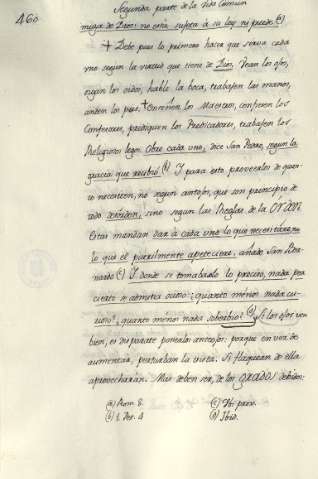 460
Segunda parte de la Vida Comun
miga de Dios: no està sujeta à su ley ni puede.(a)
+ Debe pues lo primero hacer que sirva cada
uno segun la virtud que tiene de Dios. Vean los ojos,
oygan los oidos, hable la boca, trabajen las manos,
anden los pies. Enseñen los Maestros, confiesen los
Confesores, prediquen los Predicadores, trabajen los
Religiosos legos. Obre cada uno, dice San Pedro, segun la
gracia que recibiò.(b) Y para esto proveerlos de quan-
to necesiten, no segun antojos, que son principio de
todo desorden, sino segun las Reglas de la ORDEN.
Estas mandan dar à cada uno lo que necesitàre, no
lo que èl puerilmente apeteciere, añade San Ber-
nardo.(c) Y donde se tomabà solo lo preciso, nada
se admitia ocioso: quanto menos nada cu-
rioso, quanto menos nada soberbio?(d) Si los ojos ven
bien, es disparate ponerlos anteojos: porque en vez de
aumentar, perturban la vista. Si flaquean de ella
aprovecharàn. Mas deben ser, de los GRADOS debidos:
(a) Rom. 8.
(b) 1. Pet. 4
(d) Ibid.